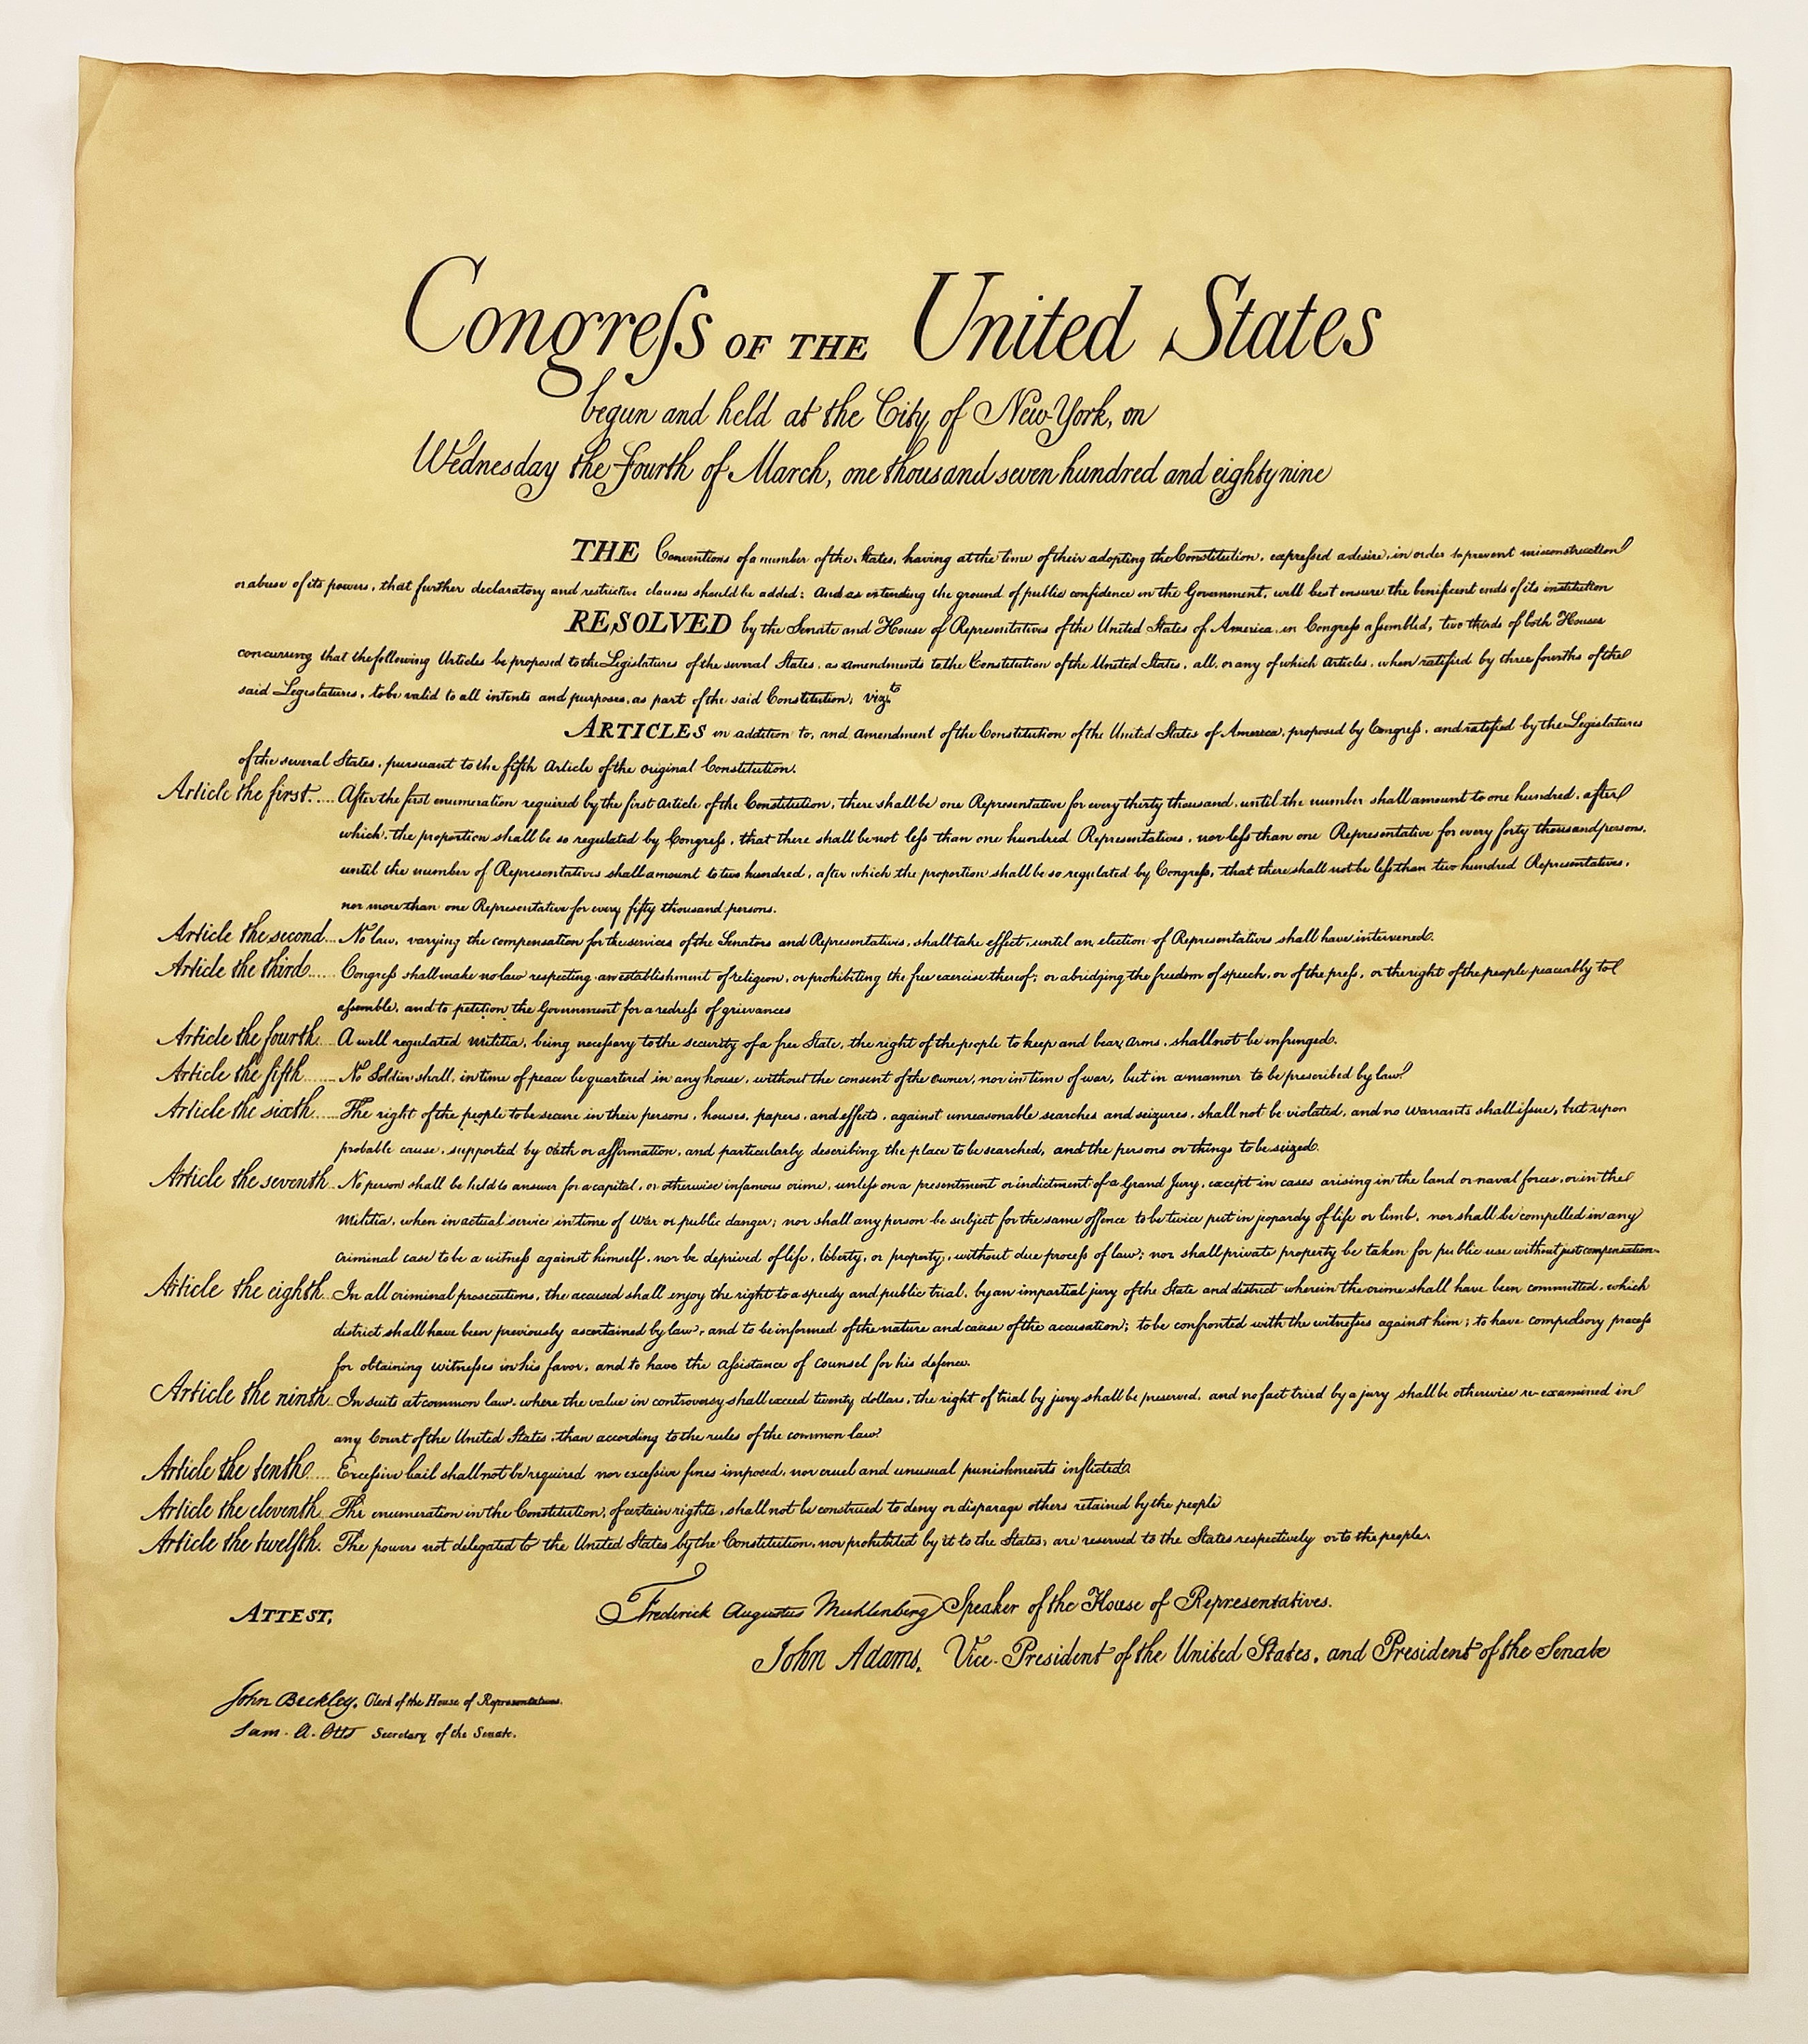 Congreſs OF THE United States
begun and held at the City of New-York, on
Wednesday the Fourth of March, one thousand seven hundred and eighty nine
THE Conventions of a number of the States, having at the time of their adopting the Constitution, expreſsed a desire, in order to prevent misconstruction
or abuse of its powers, that further declaratory and restrictive clauses should be added: And as extending the ground of public confidence in the Government, will best ensure the beneficent ends of its institution
RESOLVED by the Senate and House of Representatives of the United States of America, in Congreſs aſsembled, two thirds of both Houses
concurring that the following Articles be proposed to the Legislatures of the several States, as amendments to the Constitution of the United States, all, or any of which Articles, when ratified by three fourths of the
said Legislatures, to be valid to all intents and purposes, as part of the said Constitution; vizt
ARTICLES in addition to, and Amendment of the Constitution of the United States of America, proposed by Congreſs, and ratified by the Legislatures
of the several States, pursuant to the fifth Article of the original Constitution.
Article the first..... After the first enumeration required by the first Article of the Constitution, there shall be one Representative for every thirty thousand, until the number shall amount to one hundred, after
which, the proportion shall be so regulated by Congreſs, that there shall be not leſs than one hundred Representatives, nor leſs than one Representative for every forty thousand persons,
until the number of Representatives shall amount to two hundred, after which the proportion shall be so regulated by Congreſs, that there shall not be leſs than two hundred Representatives,
nor more than one Representative for every fifty thousand persons.
Article the second... No law, varying the compensation for the services of the Senators and Representatives, shall take effect, until an election of Representatives shall have intervened.
Article the third..... Congreſs shall make no law respecting an establishment of religion, or prohibiting the free exercise thereof; or abridging the freedom of speech, or of the preſs, or the right of the people peaceably to
aſsemble, and to petition the Government for a redreſs of grievances
Article the fourth... A well regulated Militia, being neceſsary to the security of a free State, the right of the people to keep and bear Arms, shall not be infringed.
Article the fifth...... No Soldier shall, in time of peace be quartered in any house, without the consent of the Owner, nor in time of war, but in a manner to be prescribed by law.
Article the sixth..... The right of the people to be secure in their persons, houses, papers, and effects, against unreasonable searches and seizures, shall not be violated, and no Warrants shall iſsue, but upon
probable cause, supported by Oath or affirmation, and particularly describing the place to be searched, and the persons or things to be seized.
Article the seventh.. No person shall be held to answer for a capital, or otherwise infamous crime, unleſs on a presentment or indictment of a Grand Jury, except in cases arising in the land or naval forces, or in the
Militia, when in actual service in time of War or public danger; nor shall any person be subject for the same offence to be twice put in jeopardy of life or limb, nor shall be compelled in any
criminal case to be a witneſs against himself, nor be deprived of life, liberty, or property, without due proceſs of law; nor shall private property be taken for public use without just compensation.
Article the eighth.. In all criminal prosecutions, the accused shall enjoy the right to a speedy and public trial, by an impartial jury of the State and district wherein the crime shall have been committed, which
district shall have been previously ascertained by law, and to be informed of the nature and cause of the accusation; to be confronted with the witneſses against him; to have compulsory proceſs
for obtaining witneſses in his favor, and to have the aſsistance of counsel for his defence.
Article the ninth.. In suits at common law, where the value in controversy shall exceed twenty dollars, the right of trial by jury shall be preserved, and no fact tried by a jury shall be otherwise re-examined in
any Court of the United States, than according to the rules of the common law.
Article the tenth..... Exceſsive bail shall not be required nor exceſsive fines imposed, nor cruel and unusual punishments inflicted.
Article the eleventh.. The enumeration in the Constitution, of certain rights, shall not be construed to deny or disparage others retained by the people
Article the twelfth. The powers not delegated to the United States by the Constitution, nor prohibited by it to the States, are reserved to the States respectively or to the people.
ATTEST,
Frederick Augustus Muhlenberg Speaker of the House of Representatives.
John Adams, Vice-President of the United States, and President of the Senate
John Beckley, Clerk of the House of Representatives.
Sam. A. Otis Secretary of the Senate.